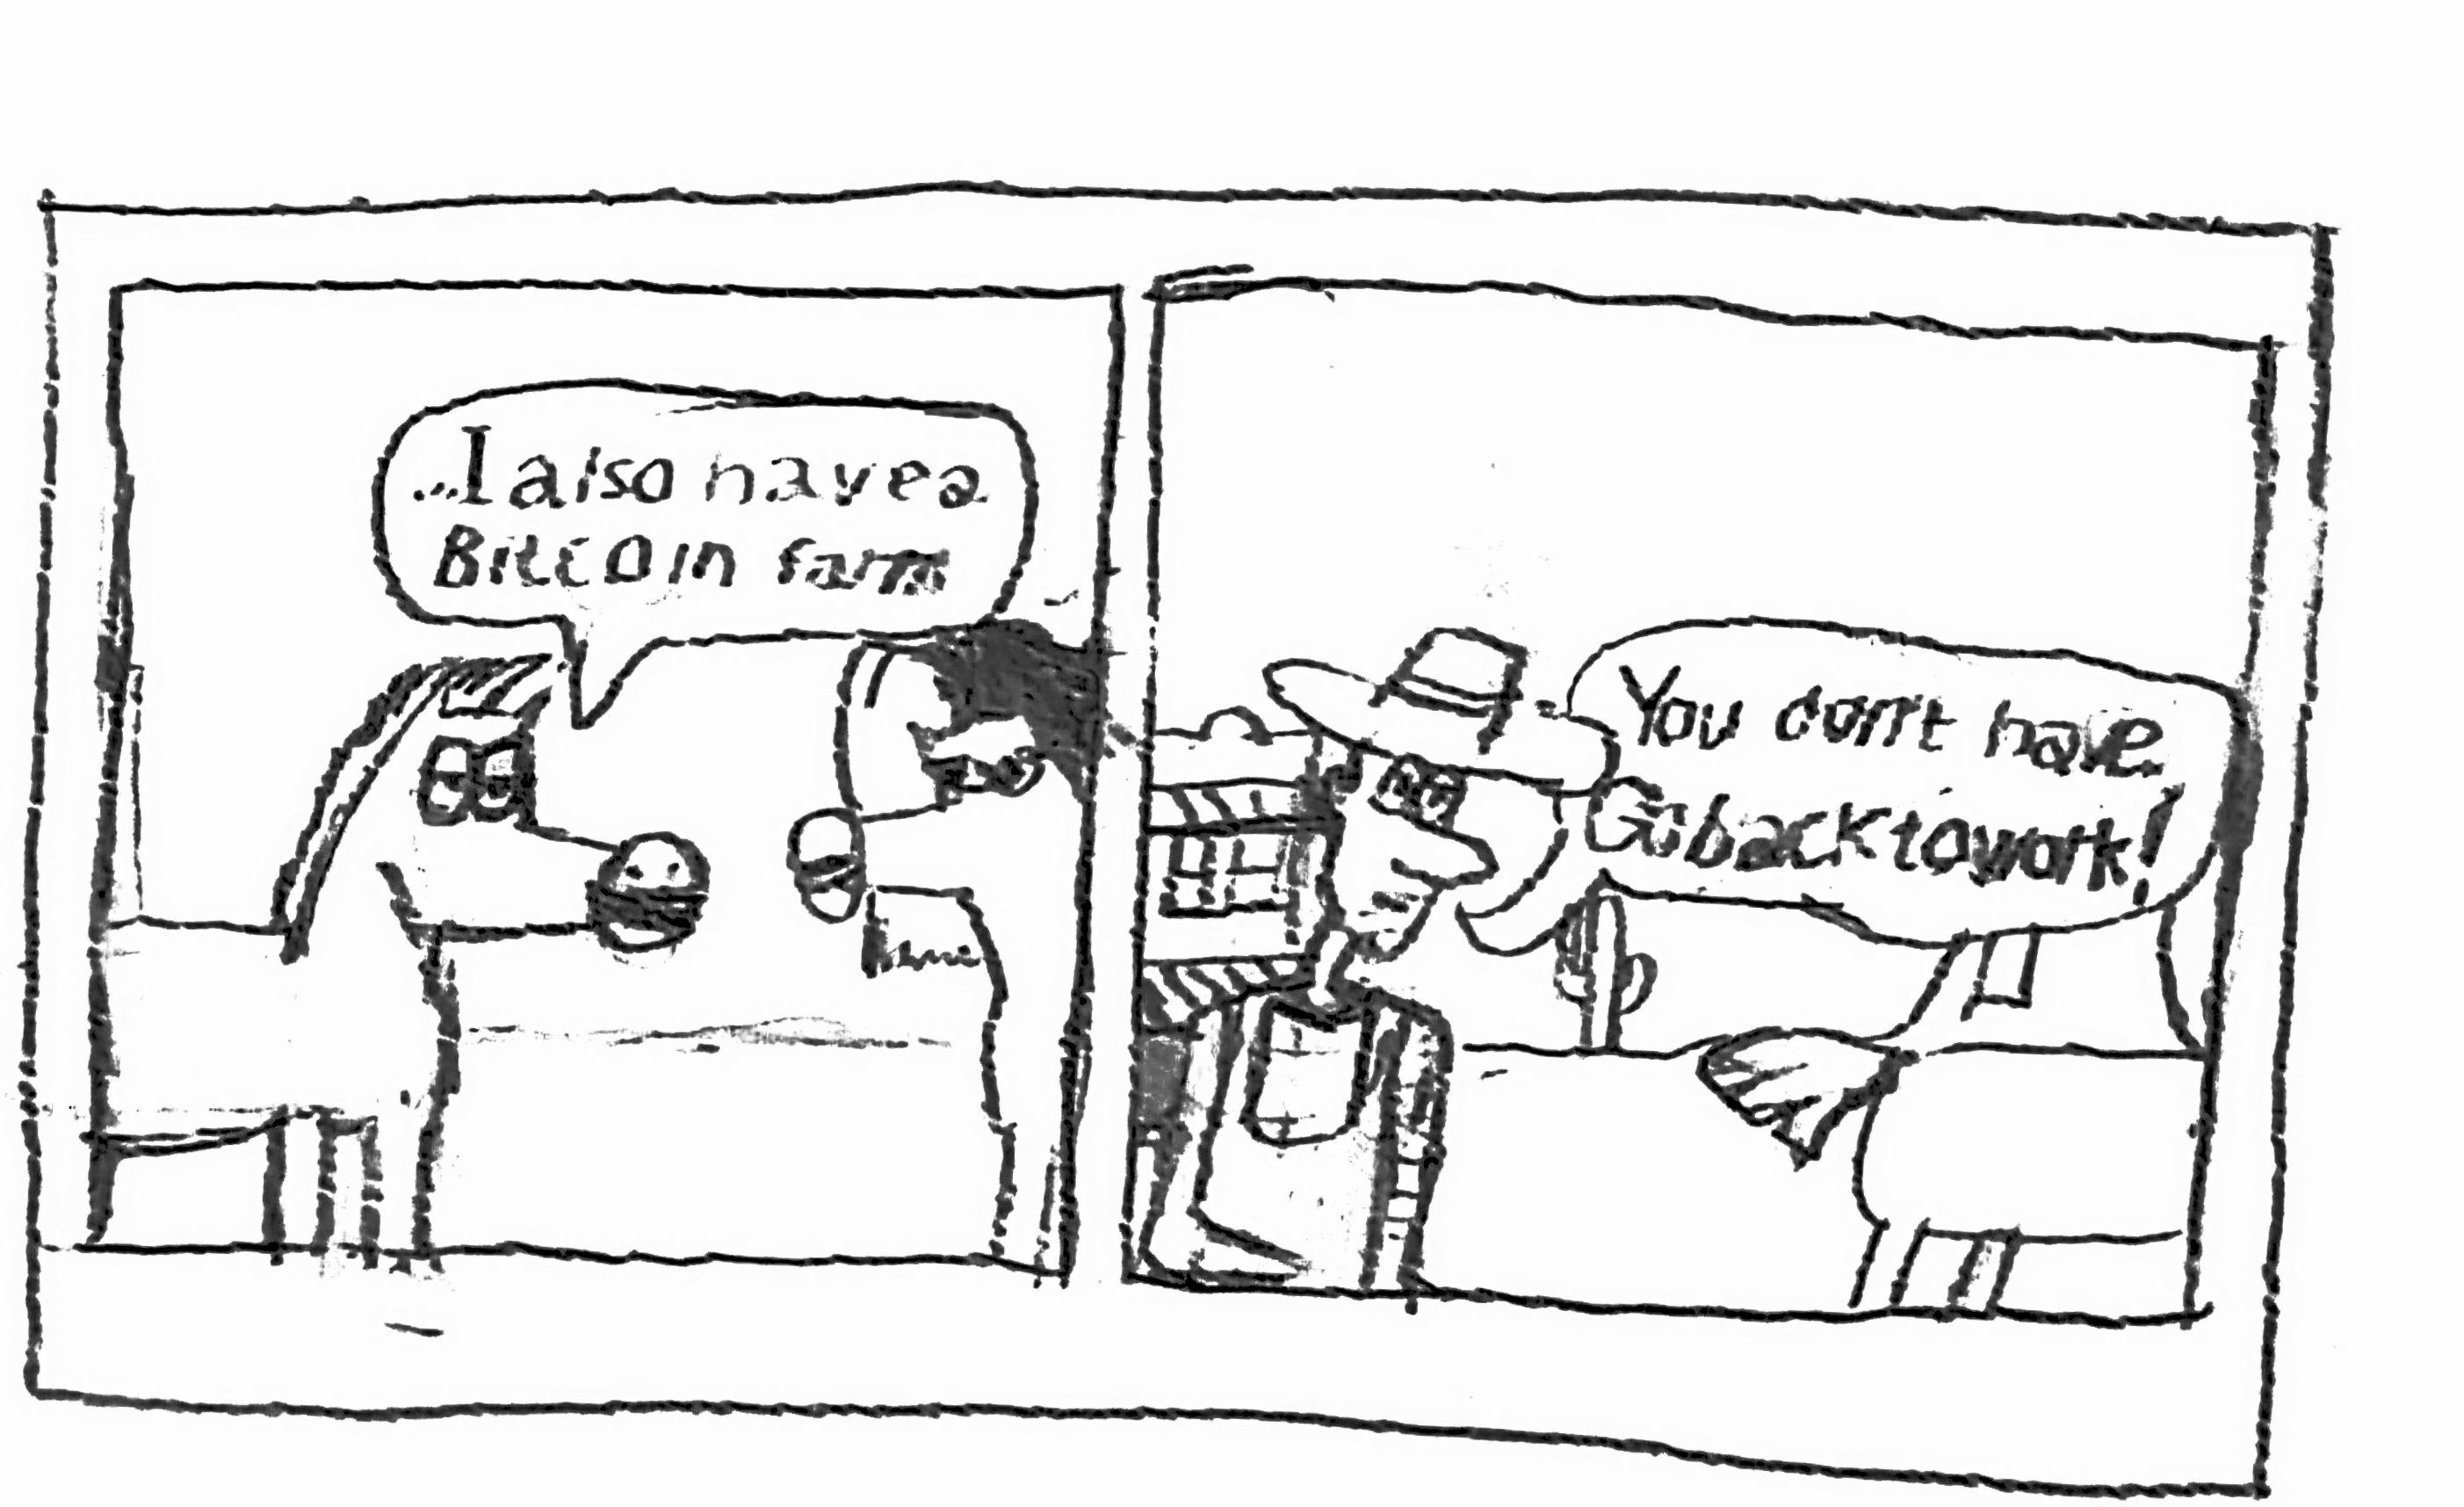 ...I also have a
Bitcoin farm
You don't have.
Go back to work!